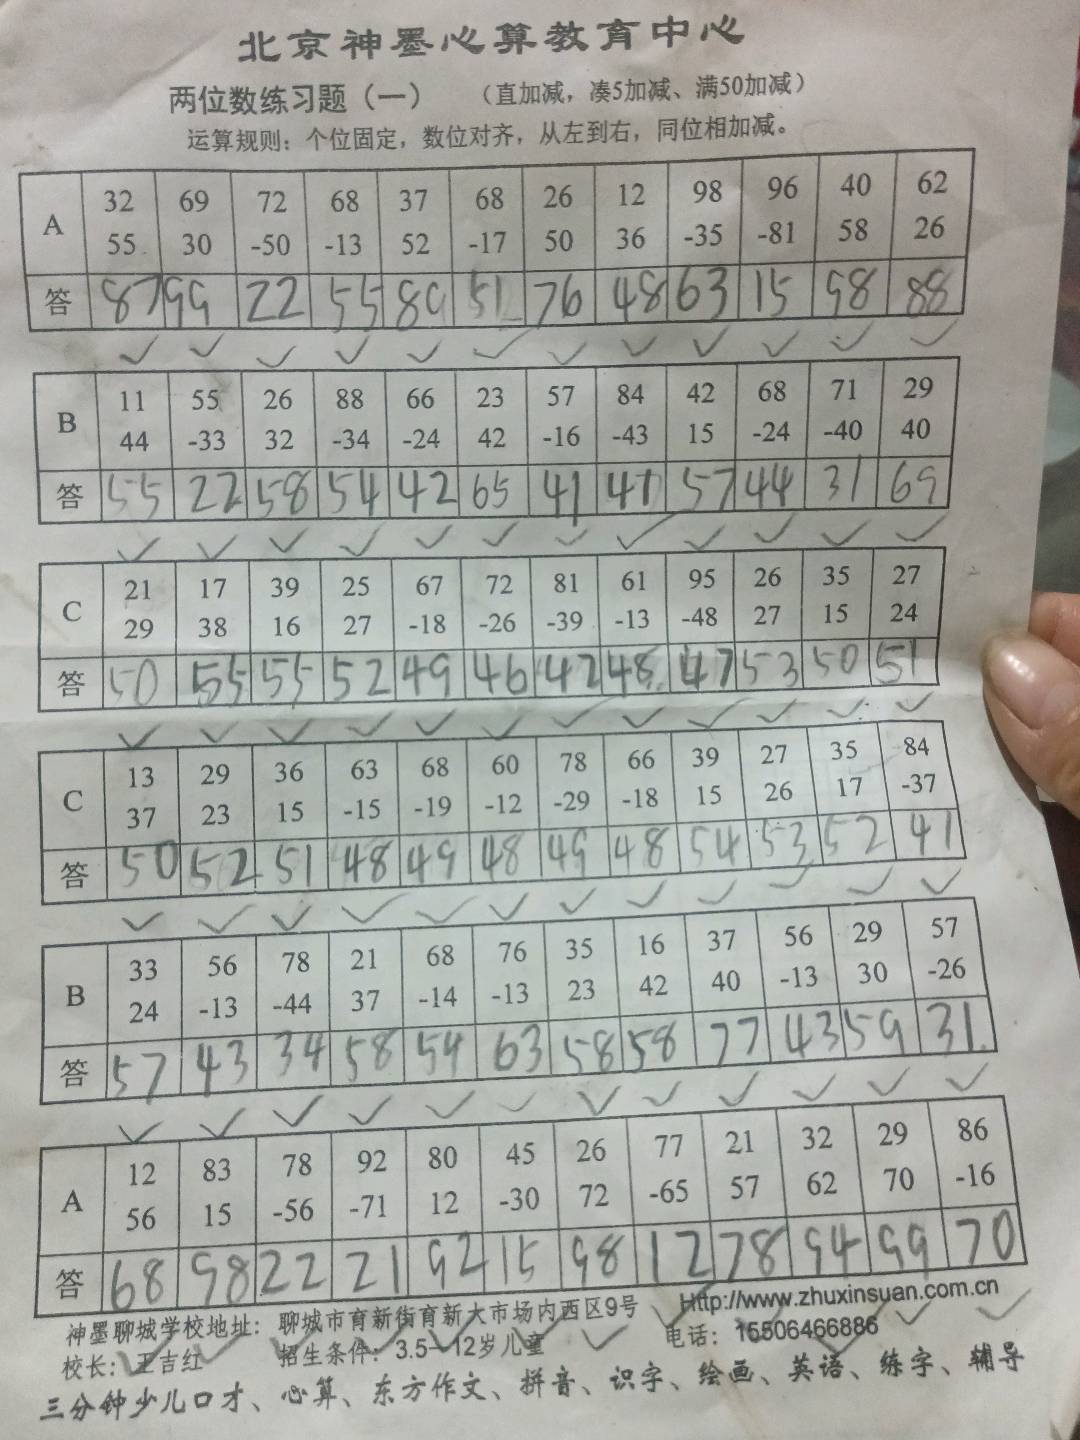 北京神墨心算教育中心
两位数练习题（一） （直加减，凑5加减、满50加减）
运算规则：个位固定，数位对齐，从左到右，同位相加减。
A 32 69 72 68 37 68 26 12 98 96 40 62
55 30 -50 -13 52 -17 50 36 -35 -81 58 26
答 87 99 22 55 89 51 76 48 63 15 98 88
B 11 55 26 88 66 23 57 84 42 68 71 29
44 -33 32 -34 -24 42 -16 -43 15 -24 -40 40
答 55 22 58 54 42 65 41 41 57 44 31 69
C 21 17 39 25 67 72 81 61 95 26 35 27
29 38 16 27 -18 -26 -39 -13 -48 27 15 24
答 50 55 55 52 49 46 42 48 47 53 50 51
C 13 29 36 63 68 60 78 66 39 27 35 84
37 23 15 -15 -19 -12 -29 -18 15 26 17 -37
答 50 52 51 48 49 48 49 48 54 53 52 41
B 33 56 78 21 68 76 35 16 37 56 29 57
24 -13 -44 37 -14 -13 23 42 40 -13 30 -26
答 57 43 34 58 54 63 58 58 77 43 59 31
A 12 83 78 92 80 45 26 77 21 32 29 86
56 15 -56 -71 12 -30 72 -65 57 62 70 -16
答 68 98 22 21 92 15 98 12 78 94 99 70
神墨聊城学校地址：聊城市育新街育新大市场内西区9号 Http://www.zhuxinsuan.com.cn
校长：王吉红 招生条件：3.5—12岁儿童 电话：15506466886
三分钟少儿口才、心算、东方作文、拼音、识字、绘画、英语、练字、辅导